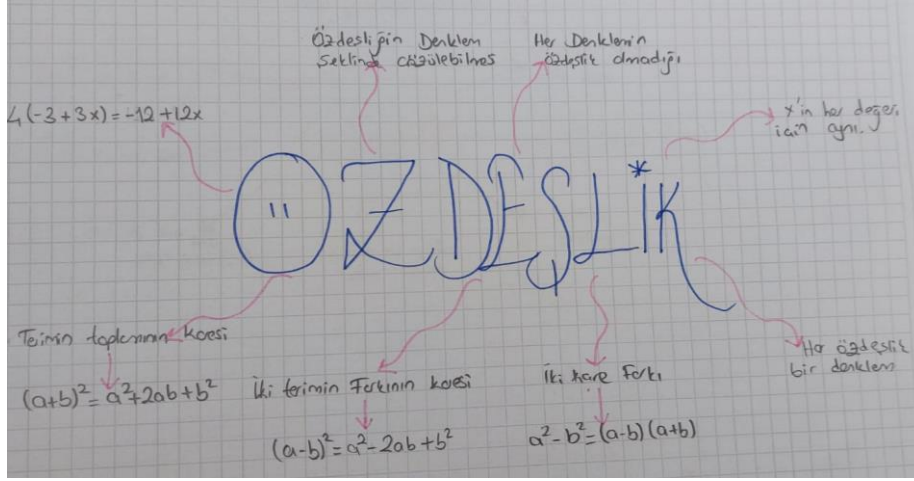 Özdesliğin Denklem
Seklinde çözülebilmes
Her Denklemin
özdeslik olmadığı
4(-3+3x)=-12+12x
x'in her değeri
için aynı.
ÖZDEŞLİK
Terimin toplamının karesi
(a+b)²=a²+2ab+b²
İki terimin Farkının karesi
(a-b)²=a²-2ab+b²
İki kare Farkı
a²-b²=(a-b)(a+b)
Her özdeslik
bir denklem